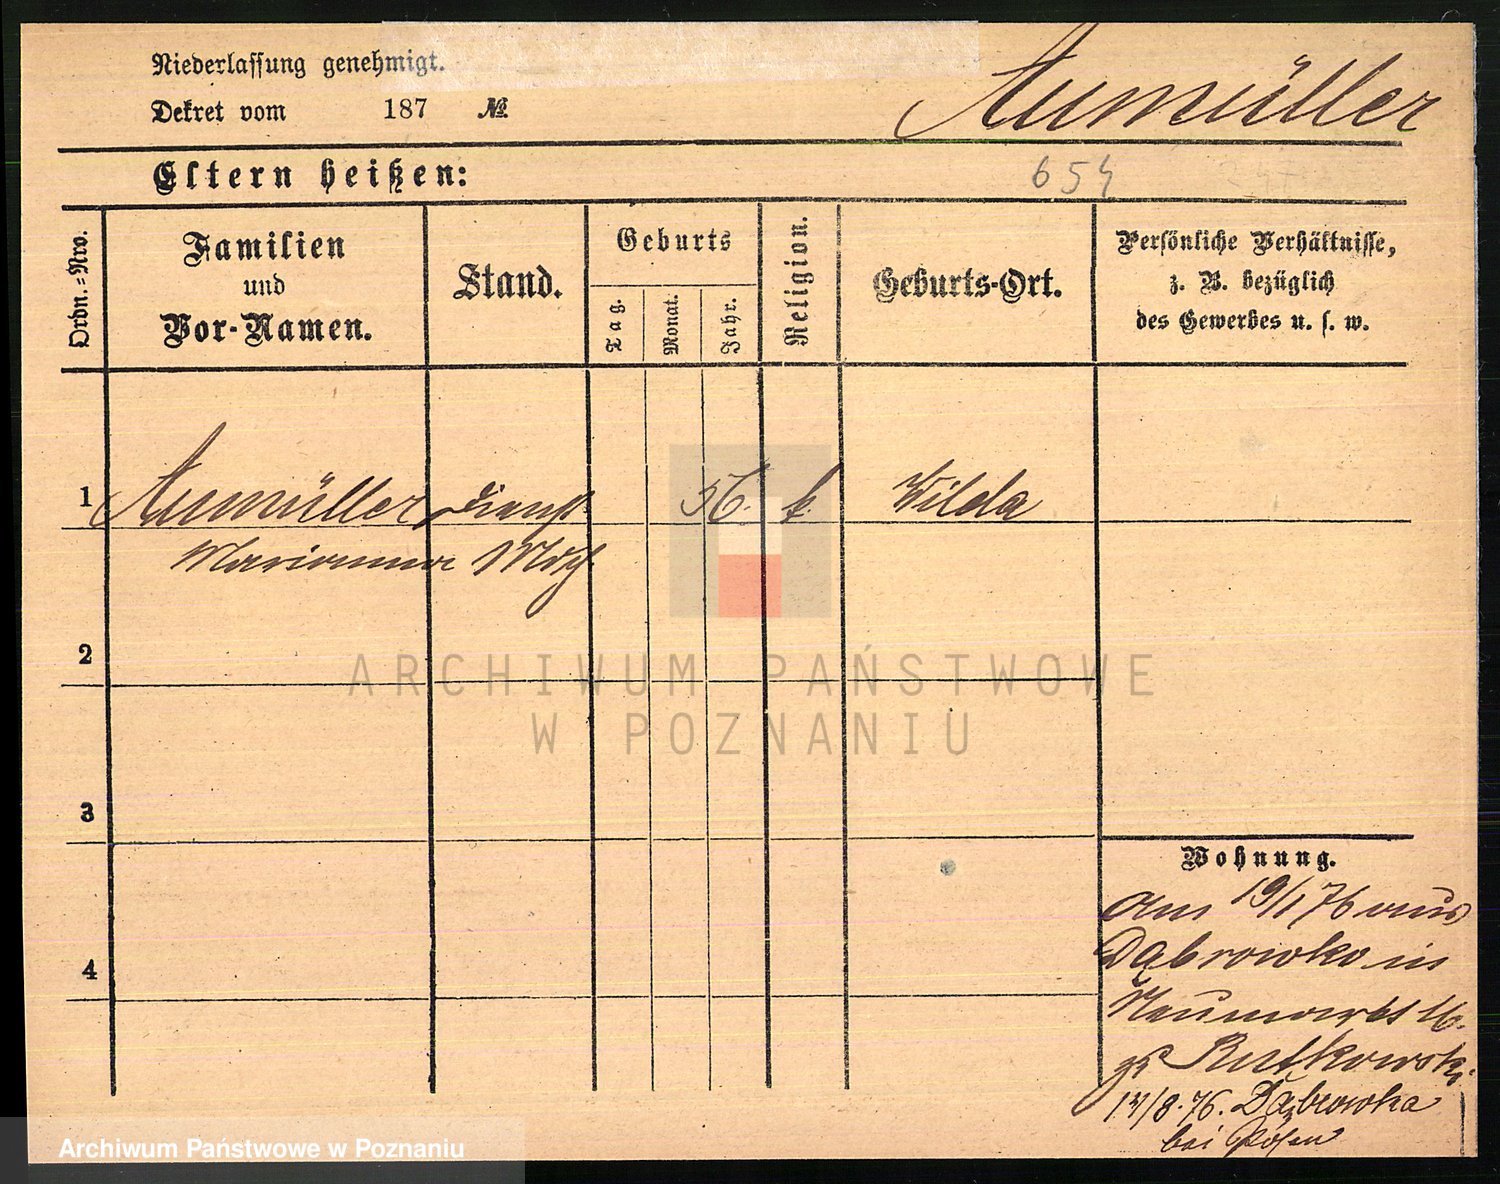 Niederlassung genehmigt.
Dekret vom 187 №
Aumüller
Eltern heißen:
654
Ordn.=Nro.
Familien
und
Vor-Namen.
Stand.
Geburts
Tag.
Monat.
Jahr.
Religion.
Geburts-Ort.
Persönliche Verhältnisse,
z. B. bezüglich
des Gewerbes u. s. w.
1 Aumüller Dienst 56. k. Wilda
Marianna Mdch
2
3
4
Wohnung.
Am 19/1 76 aus
Dąbrowka in
Neumarkt 16.
zu Rutkowski.
14/8.76. Dąbrowka
bei Posen
ARCHIWUM PAŃSTWOWE
W POZNANIU
Archiwum Państwowe w Poznaniu